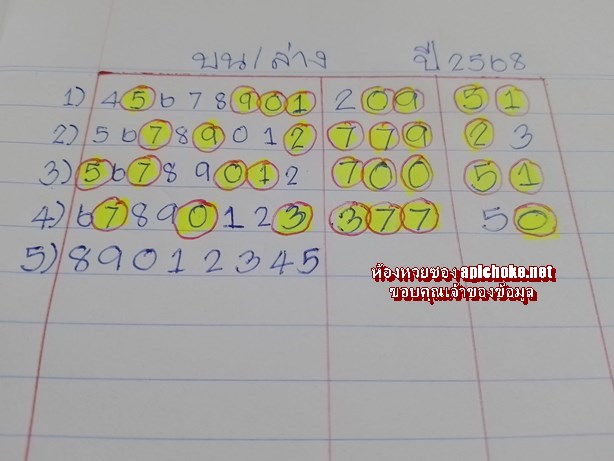 บน/ล่าง ปี 2568
1) 4 5 6 7 8 9 0 1 2 0 9 5 1
2) 5 6 7 8 9 0 1 2 7 7 9 2 3
3) 5 6 7 8 9 0 1 2 7 0 0 5 1
4) 6 7 8 9 0 1 2 3 3 7 7 5 0
5) 8 9 0 1 2 3 4 5
ห้องหวยซอง apichoke.net
ขอบคุณเจ้าของข้อมูล